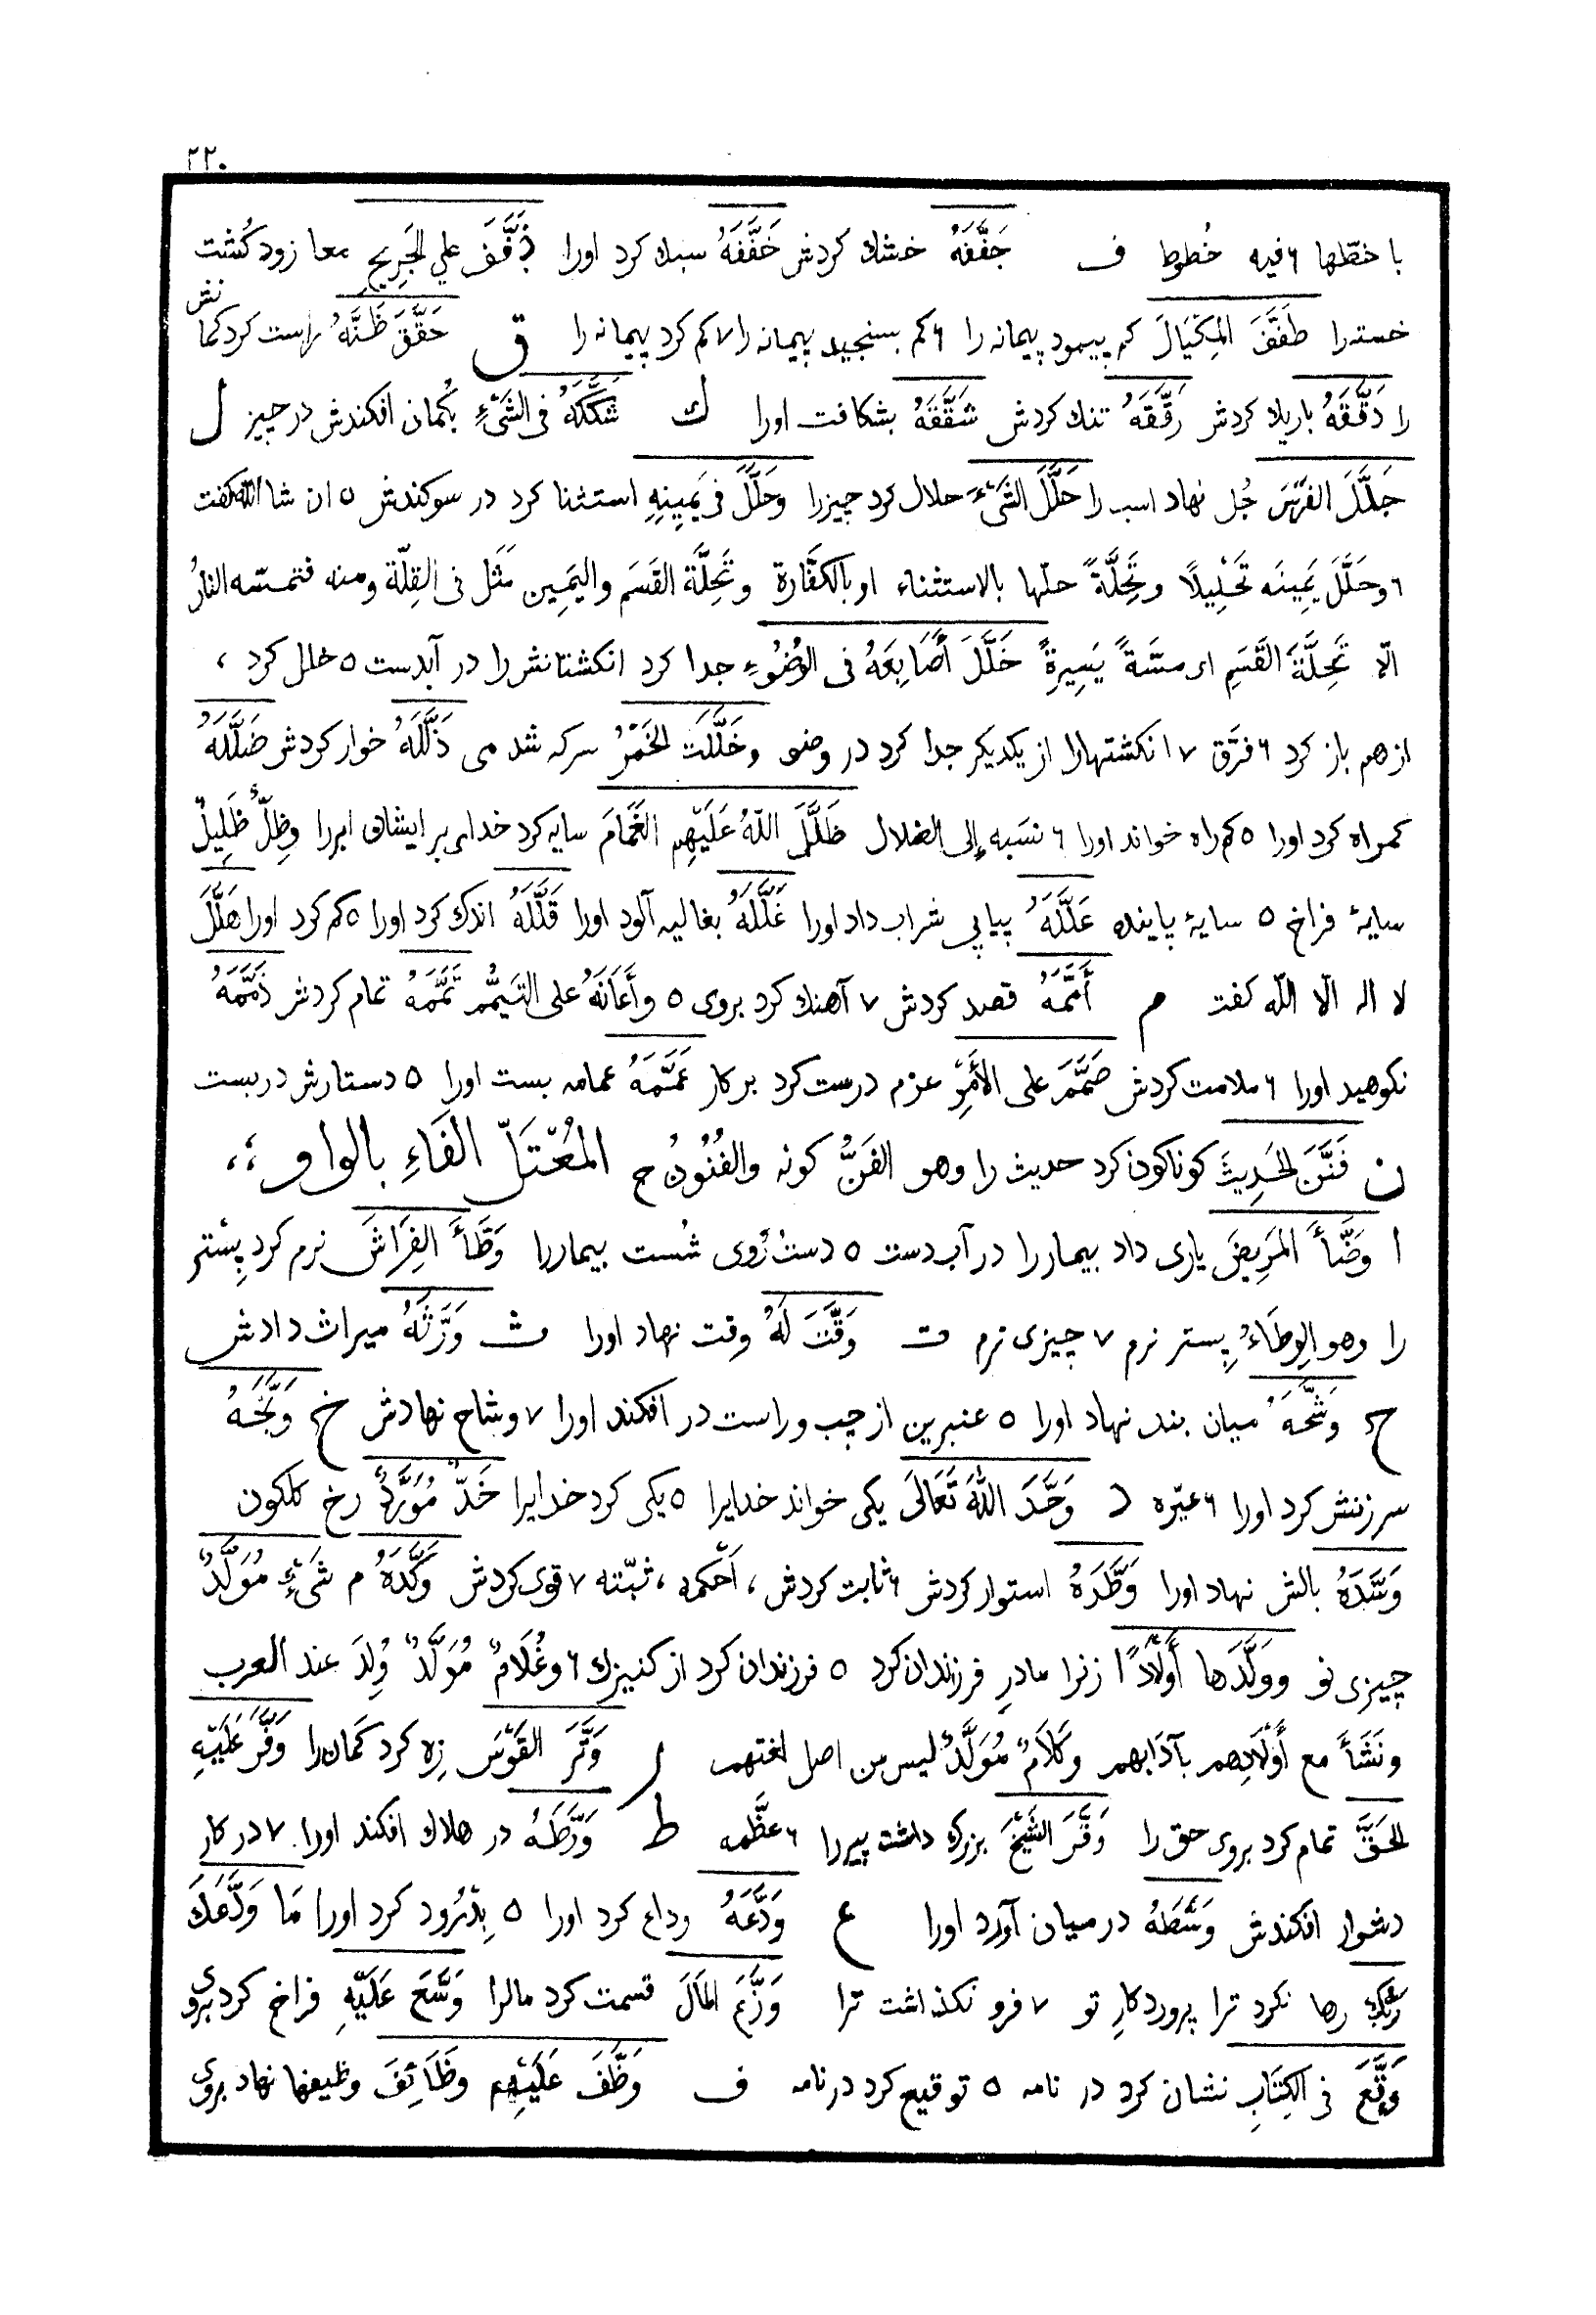 ٢٢٠
با خطّها ٦ فيه خُطوط ف جَفَّفَهُ خشك كردش خَفَّفَهُ سبك كرد اورا ذَفَّفَ علي الجَرِيحِ معا زود كُشت
خسته را طَفَّفَ المِكْيَالَ كم بپيمود پيمانه را ٦ كم بسنجيد پيمانه را ٧ كم كرد پيمانه را ق حَقَّقَ ظَنَّهُ راست كرد كما نش
را دَقَّقَهُ باريك كردش رَقَّقَهُ تنك كردش شَقَّقَهُ بشكافت اورا ك شَكَّكَهُ فى الشَىْءِ بكُمان افكندش در چيز ل
جَلَّلَ الفَرَسَ جُل نهاد اسب را حَلَّلَ الشَىْءَ حلال كرد چيزرا وحَلَّلَ فى يَمِينِهِ استثنا كرد در سوكندش ٥ ان شا الله كفت
٦ وحَلَّلَ يَمِينَه تَحْلِيلًا وتَحِلَّةً حلّها بالاستثناء او بالكفّارة وتَحِلَّة القَسَم واليَمِين مَثَل فى القِلّة ومنه فتمسّه النارُ
الّا تَحِلَّةَ القَسَمِ اى مسّةً يَسِيرةً خَلَّلَ أَصَابِعَهُ فى الوُضُوءِ جدا كرد انكشتانش را در آبدست ٥ خلل كرد ،
ازهم باز كرد ٦ فرّق ٧ انكشتهارا از يكديكر جدا كرد در وضو وخَلَّلَت الخَمْرُ سركه شد مى ذَلَّلَهُ خوار كردش ضَلَّلَهُ
كمراه كرد اورا ٥ كم راه خواند اورا ٦ نسَبه إلى الضلال ظَلَّلَ اللهُ عَلَيْهِم الغَمَامَ سايه كرد خداى بر ايشان ابررا وظِلٌّ ظَلِيلٌ
سايۀ فراخ ٥ سايۀ پاينده عَلَّلَهُ پياپى شراب داد اورا غَلَّلَهُ بغاليه آلود اورا قَلَّلَهُ اندك كرد اورا ٥ كم كرد اورا هَلَّلَ
لا اله الّا الله كفت م أَمَّمَهُ قصد كردش ٧ آهنك كرد بروى ٥ وأَعَانَهُ على التيَمُّم تَمَّمَهُ تمام كردش ذَمَّمَهُ
نكوهيد اورا ٦ ملامت كردش صَمَّمَ على الأَمْرِ عزم درست كرد بر كار عَمَّمَهُ عمامه بست اورا ٥ دستارش دربست
ن فَنَّنَ الحَدِيثَ كوناكون كرد حديث را وهو الفَنُّ كونه والفُنُونُ ج المُعْتَلّ الفَاءِ بالواو
ا وَضَّأَ المَرِيضَ يارى داد بيماررا در آب دست ٥ دست رُوى شُست بيماررا وَطَّأَ الفِرَاشَ نرم كرد پِستر
را وهو الوِطَاءُ پِستر نرم ٧ چيزى نرم ت وَقَّتَ لَهُ وقت نهاد اورا ث وَرَّثَهُ ميراث دادش
ح وَشَّحَهُ ميان بند نهاد اورا ٥ عنبرين از چپ وراست در افكند اورا ٧ وشاح نهادش خ وَبَّخَهُ
سرزنش كرد اورا ٦ عيّره د وَحَّدَ اللهَ تَعَالَى يكى خواند خدايرا ٥ يكى كرد خدايرا خَدٌّ مُوَرَّدٌ رخ كلكون
وَسَّدَهُ بالش نهاد اورا وَطَّدَهُ استوار كردش ٦ ثابت كردش ، أحكمه ، ثبّته ٧ قوى كردش وَكَّدَهُ م شَىْءٍ مُوَلَّدٌ
چيزى نو ووَلَّدَها أَوْلَادًا زنرا مادرِ فرزندان كرد ٥ فرزندان كرد از كنيزك ٦ وغُلَامٌ مُوَلَّدٌ وُلِدَ عند العرب
ونَشَأَ مع أَوْلَادِهم بآدَابهم وكَلَامٌ مُوَلَّدٌ ليس من اصل لغتهم ر وَتَّرَ القَوْسَ زِه كرد كمان را وَفَّرَ عَلَيْهِ
الحَقَّ تمام كرد بروى حق را وَقَّرَ الشَّيْخَ بزرك داشت پيررا ٦ عظّمه ط وَرَّطَهُ در هلاك افكند اورا. ٧ در كار
دشوار افكندش وَسَّطَهُ درميان آورد اورا ع وَدَّعَهُ وداع كرد اورا ٥ بِدْرُود كرد اورا مَا وَدَّعَكَ
رَبُّكَ رها نكرد ترا پروردكارِ تو ٧ فرو نكذاشت ترا وَزَّعَ المَالَ قسمت كرد مالرا وَسَّعَ عَلَيْهِ فراخ كرد بروى
وَقَّعَ فى الكِتَابِ نشان كرد در نامه ٥ توقيع كرد در نامه ف وَظَّفَ عَلَيْهِم وظَائِفَ وظيفها نهاد بروى